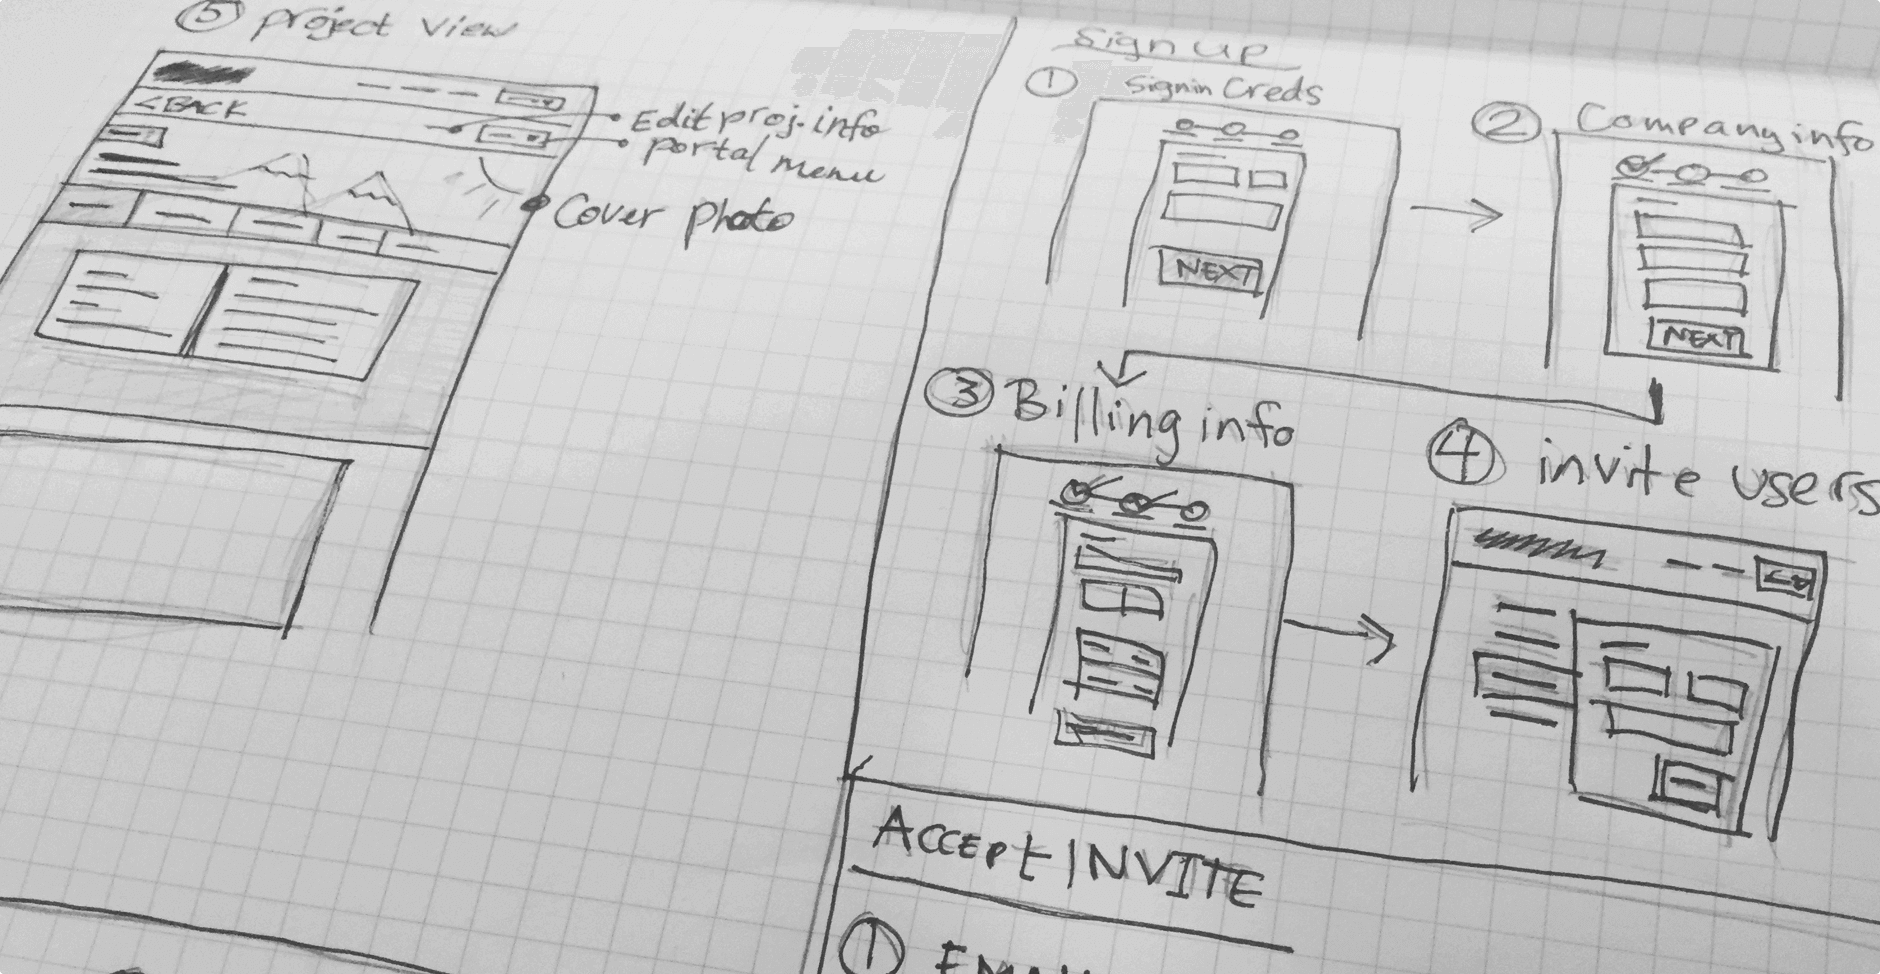 5 project view
<BACK
Edit proj. info
portal menu
Cover photo
Sign up
1 Signin Creds
NEXT
2 Company info
NEXT
3 Billing info
4 invite users
Accept INVITE
1